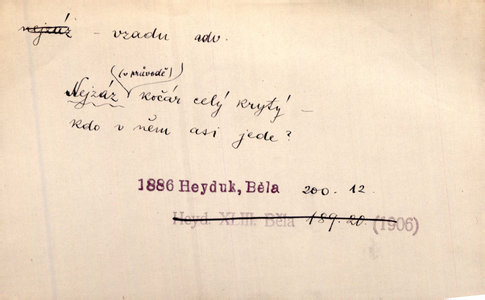 nejzáz – vzadu adv.
(v průvodě)
Nejzáz kočár celý krytý –
kdo v něm asi jede?
1886 Heyduk, Běla 200. 12.
Heyd. XLIII. Běla 189. 20. (1906)